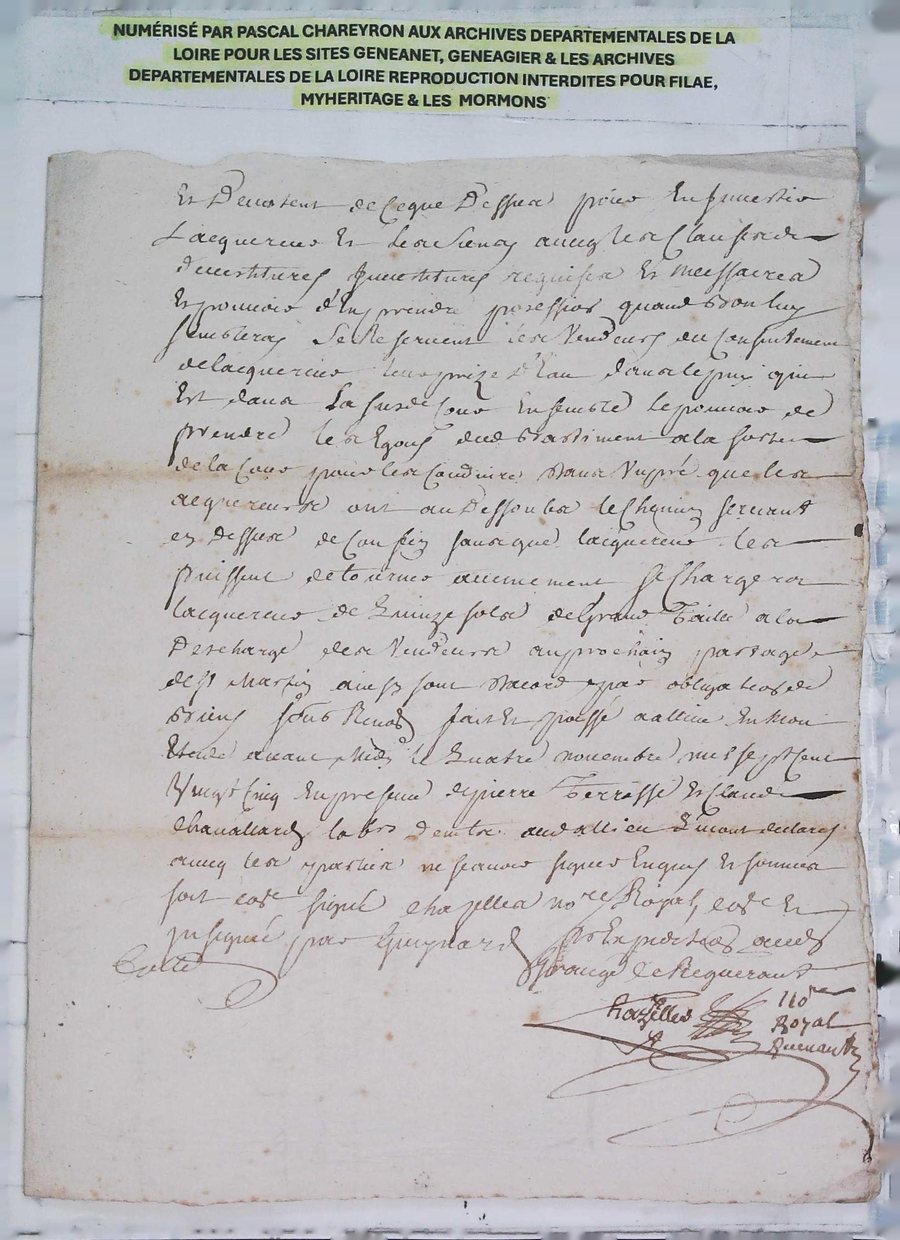 NUMÉRISÉ PAR PASCAL CHAREYRON AUX ARCHIVES DEPARTEMENTALES DE LA
LOIRE POUR LES SITES GENEANET, GENEAGIER & LES ARCHIVES
DEPARTEMENTALES DE LA LOIRE REPRODUCTION INTERDITES POUR FILAE,
MYHERITAGE & LES MORMONS
Et Devestent de Ceque Dessus pour En Jnvestir
Lacquereur Et Les Siens avecq les Clauses de
devestitures Jnvestitures requises Et necessaires
Et pouvoir d'En prendre possession quand bon luy
Semblera Se Reservent les Vendeurs du Consentement
delacquereur leur prize d'Eau dans le puy qui
Est dans La susde Cour Ensemble le pouvoir de
prendre les Egous dud bastiment a la sortie
de la Cour pour les Conduire dans Un pré que les
acquereurs ont au Dessoubs le Chemin servant
en dessus de Confin sans que lacquereur les
puissent detourner aucunement Se Chargera
lacquereur de quinze sols de Grand Taille a la
Descharge des Vendeurs au prochain partage
de St Martin ainsy sont d'acord par obligation de
biens sous Renon fait Et passé a allieu En mon
Etude avant midy le quatre novembre mil sept Cent
Vingt Cinq En presence de pierre Terrasse Et Claude
Chavallard labrs dem̄ts aud allieu qui ont declarez
avecq les parties ne scavoir signer Enquis Et sommés
soit cose signé Chazelles nore Royal, cose Et
Jnsignué par Guignard pr Expedition aud
Grange Le Requerant
Colla
Chazelles
nore
Royal